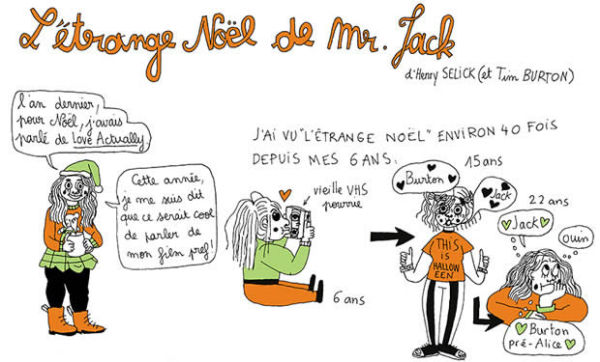 L'étrange Noël de Mr. Jack
d'Henry SELICK (et Tim BURTON)
l'an dernier,
pour Noël, j'avais
parlé de Love Actually.
Cette année,
je me suis dit
que ce serait cool
de parler de
mon film pref!
J'AI VU "L'ÉTRANGE NOËL" ENVIRON 40 FOIS
DEPUIS MES 6 ANS:
vieille VHS
pourrie
6 ans
15 ans
Burton
Jack
THIS
IS
HALLOW
EEN
22 ans
Jack
Ouin
Burton
pré-Alice